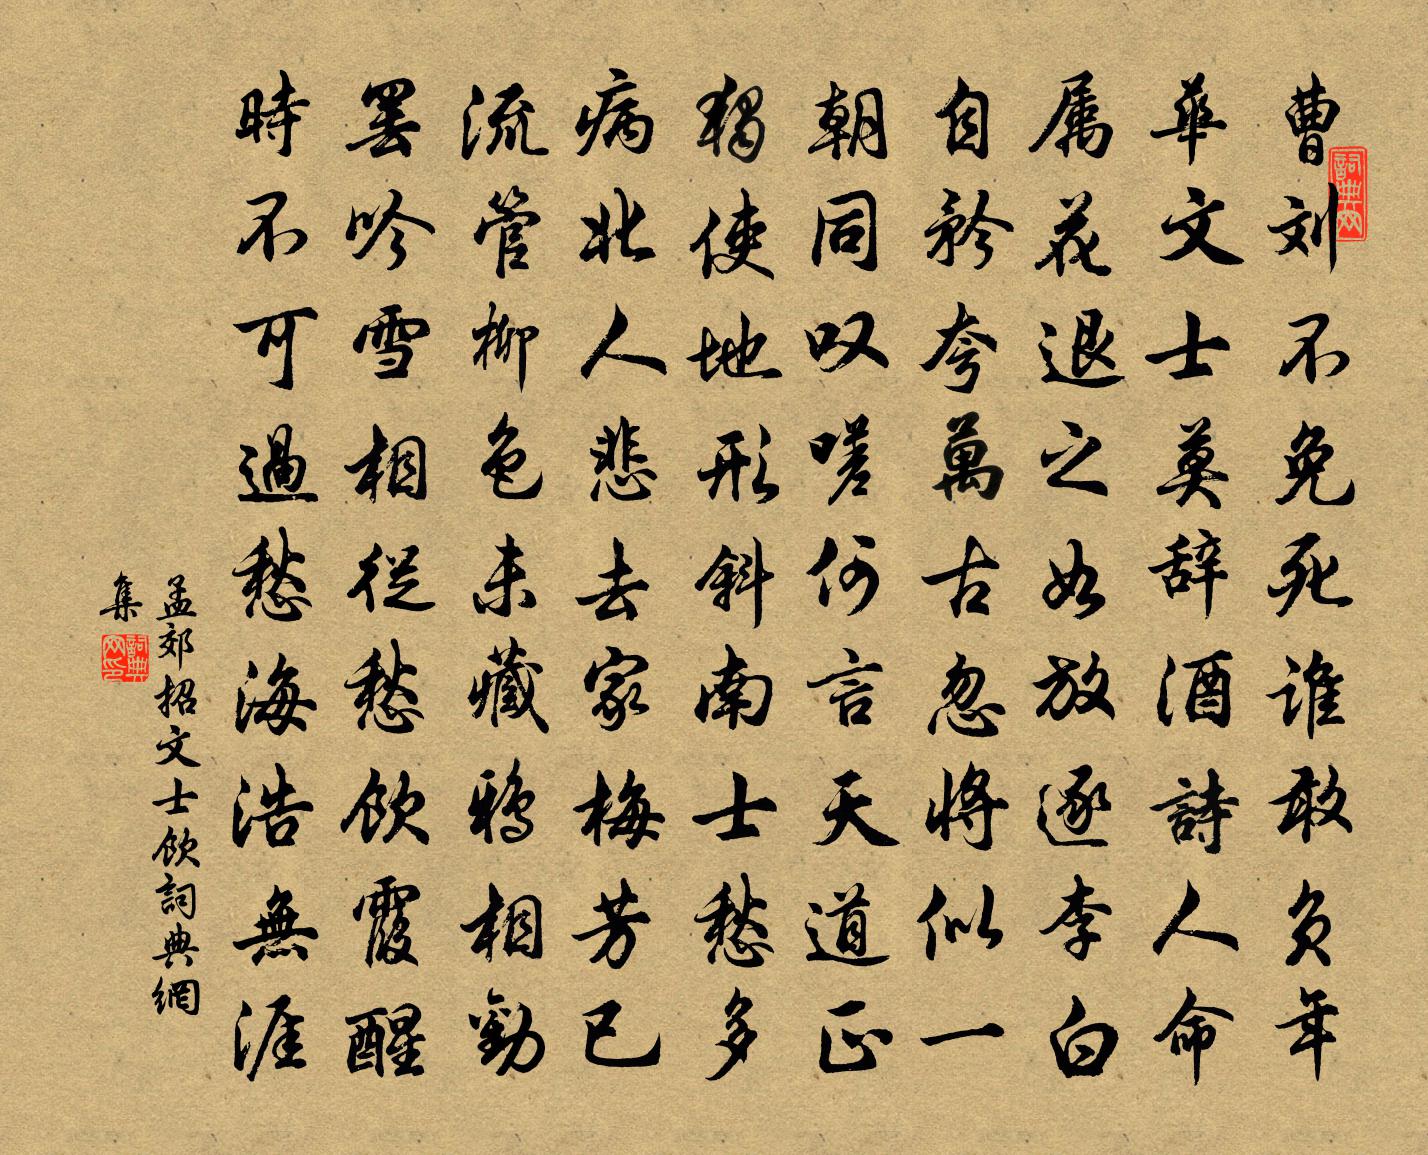 曹刘不免死谁敢负年
華文士莫辞酒詩人命
属花退之如放逐李白
自矜夸萬古忽將似一
朝同叹嗟何言天道正
獨使地形斜南士愁多
病北人悲去家梅芳已
流管柳色未藏鸦相勸
罢吟雪相從愁飲霞醒
時不可過愁海浩無涯
孟郊招文士飲詞典網
集
詞典网
詞典网印